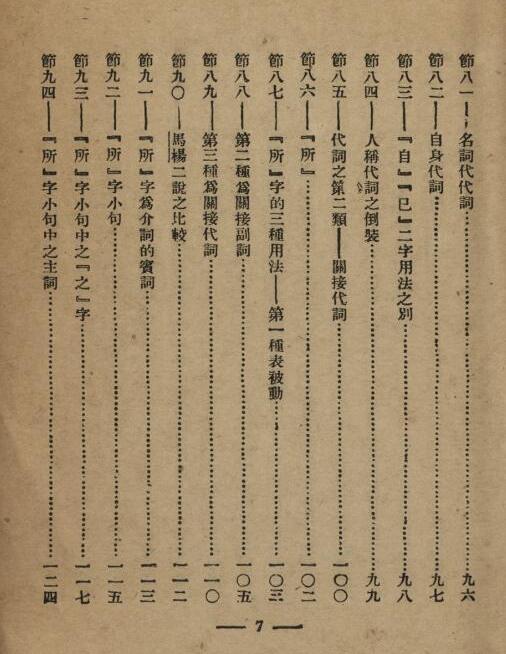 節八一——名詞代代詞……九六
節八二——自身代詞……九七
節八三——『自』『已』二字用法之別……九八
節八四——人稱代詞之倒裝……九九
節八五——代詞之第二類——關接代詞……一〇〇
節八六——『所』……一〇二
節八七——『所』字的三種用法——第一種表被動……一〇三
節八八——第二種爲關接副詞……一〇五
節八九——第三種爲關接代詞……一一〇
節九〇——馬楊二說之比較……一一二
節九一——『所』字爲介詞的賓詞……一一三
節九二——『所』字小句……一一五
節九三——『所』字小句中之『之』字……一一七
節九四——『所』字小句中之主詞……一二四
— 7 —